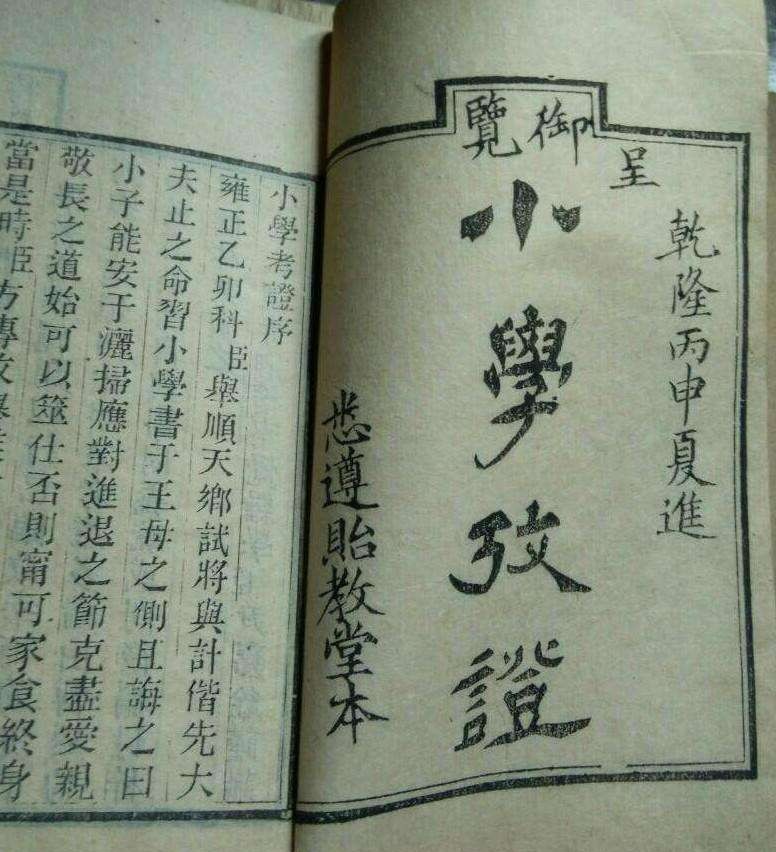 乾隆丙申夏進
呈
御覽
小學攷證
悉遵貽教堂本
小學考證序
雍正乙卯科臣舉順天鄉試將與計偕先大
夫止之命習小學書于王母之側且誨之曰
小子能安于灑掃應對進退之節克盡愛親
敬長之道始可以筮仕否則甯可家食終身
當是時臣方專攻舉